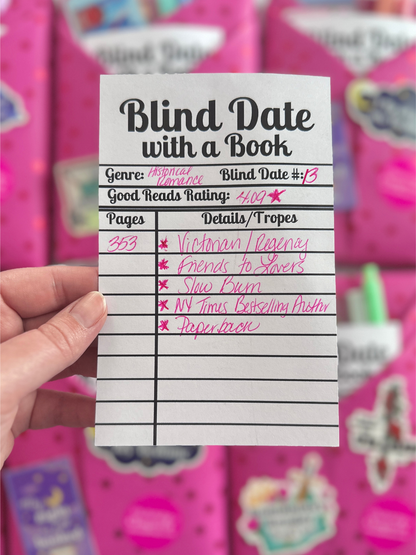 Blind Date
with a Book
Genre: Historical Romance Blind Date #: 13
Good Reads Rating: 4.09 ★
Pages Details/Tropes
353 ★ Victorian/Regency
★ Friends to Lovers
★ Slow Burn
★ NY Times Bestselling Author
★ Paperback
Blind Date
Blind Date